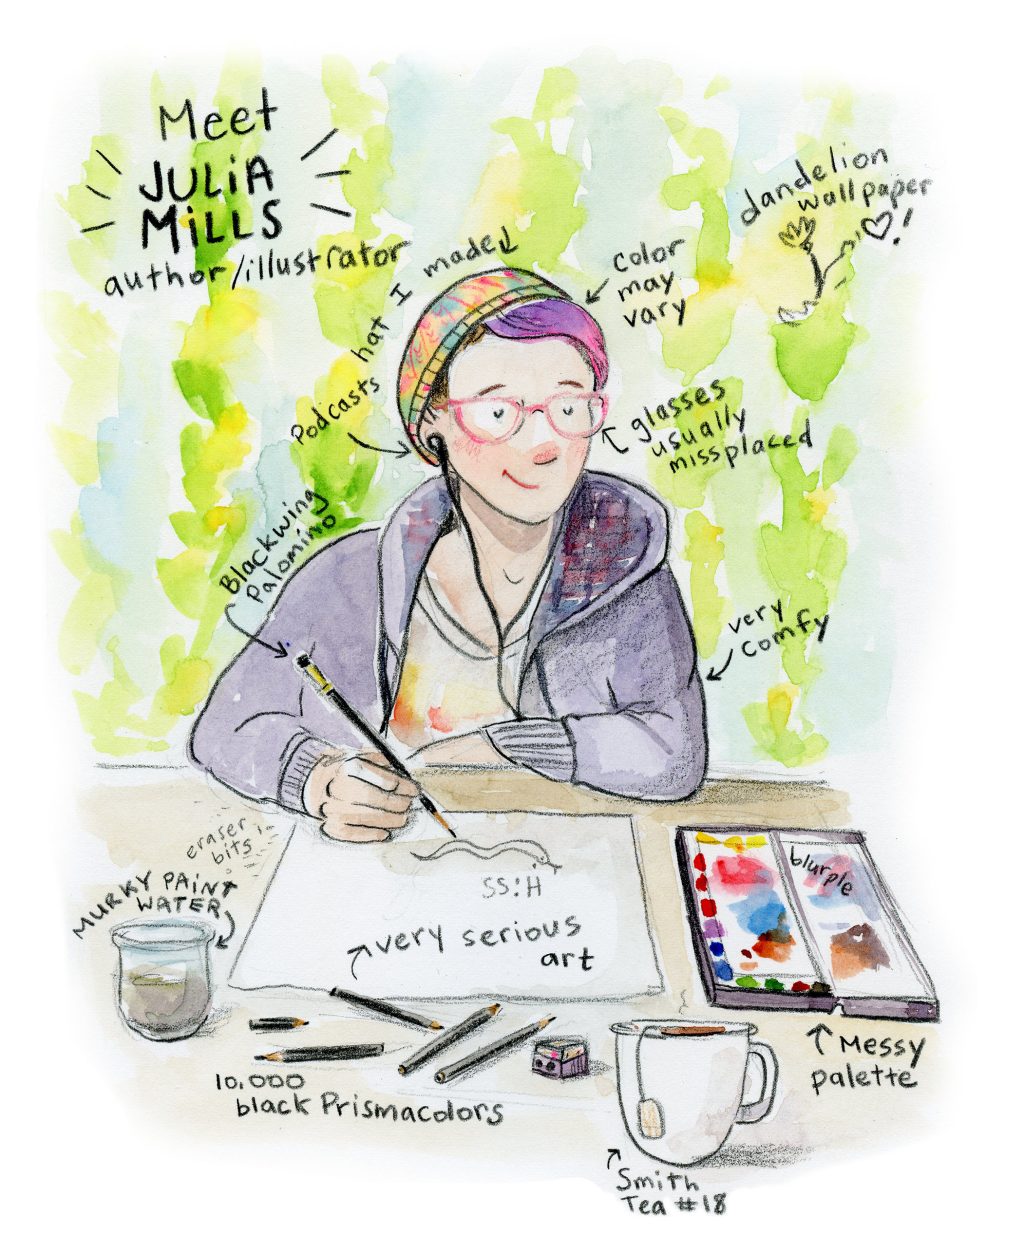 Meet
JULIA
MILLS
author/illustrator
hat I made
color
may
vary
dandelion
wallpaper
!
Podcasts
glasses
usually
missplaced
Blackwing
Palomino
very
comfy
eraser
bits
MURKY PAINT
WATER
SS:H
very serious
art
blurple
Messy
palette
10,000
black Prismacolors
Smith
Tea #18